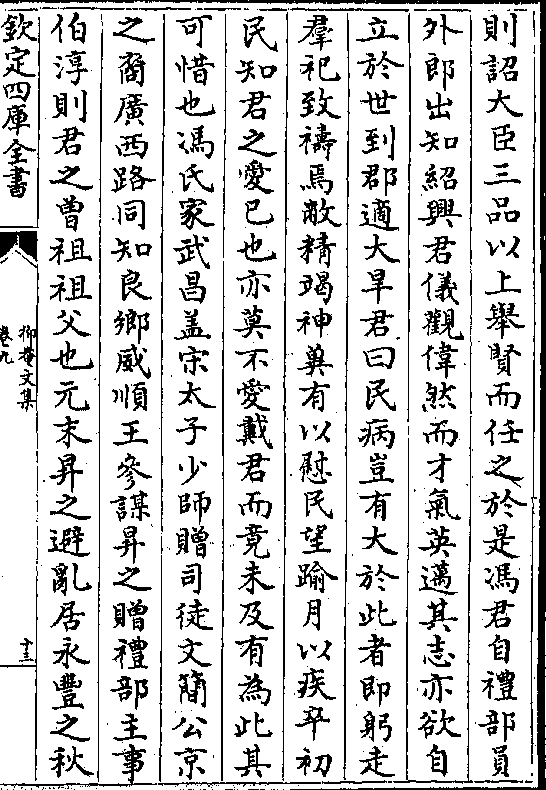 則詔大臣三品以上舉賢而任之於是馮君自禮部員
外郎出知紹興君儀觀偉然而才氣英邁其志亦欲自
立於世到郡適大旱君曰民病豈有大於此者即躬走
羣祀致禱焉敝精竭神冀有以慰民望踰月以疾卒初
民知君之愛已也亦莫不愛戴君而竟未及有為此其
可惜也馮氏家武昌盖宋太子少師贈司徒文簡公京
之裔廣西路同知良鄉威順王參謀昇之贈禮部主事
伯淳則君之曾祖祖父也元末昇之避亂居永豐之秋
欽定四庫全書
抑菴文集
卷九
十三